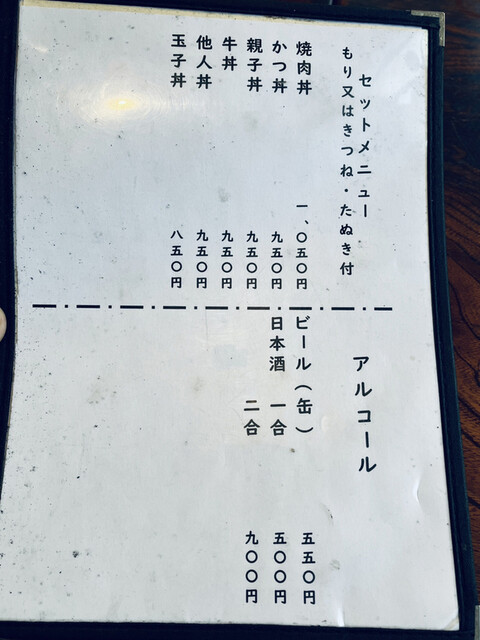 セットメニュー
もり又はきつね・たぬき付
焼肉丼 一、〇五〇円
かつ丼 九五〇円
親子丼 九五〇円
牛丼 九五〇円
他人丼 九五〇円
玉子丼 八五〇円
アルコール
ビール（缶） 五五〇円
日本酒 一合 五〇〇円
二合 九〇〇円